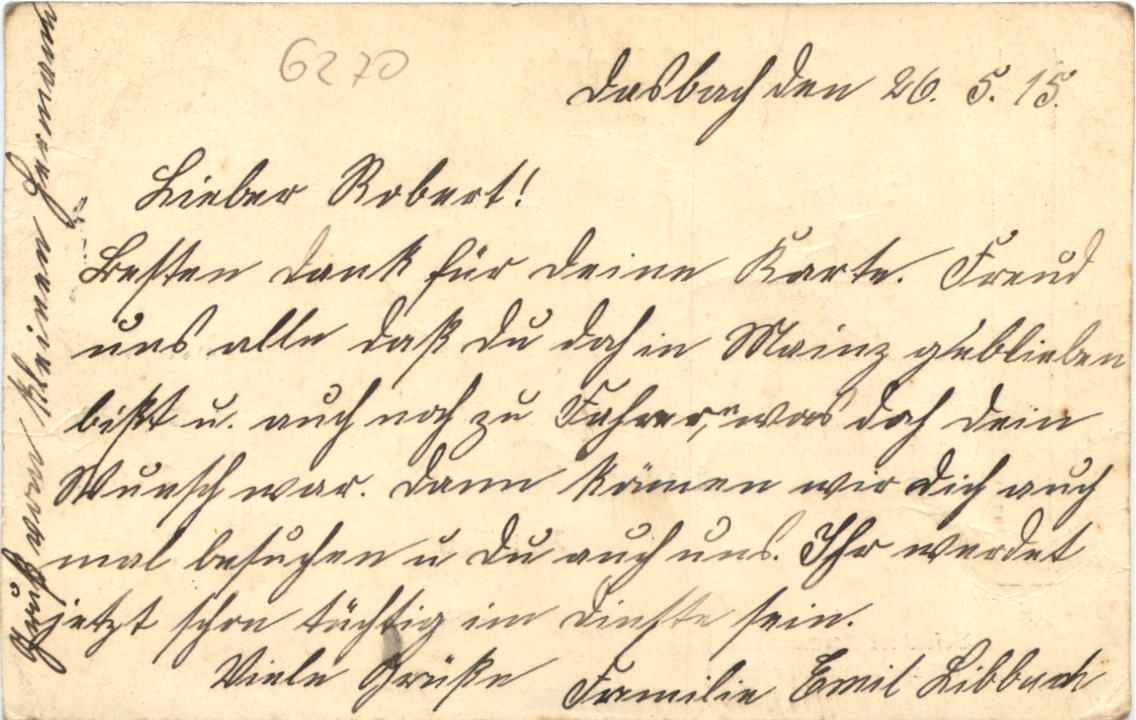 6270
Dasbach den 26. 5. 15.
Lieber Robert!
Besten Dank für deine Karte. Freud
uns alle daß du doch in Mainz geblieben
bißt u. auch noch zu Fahrer, was doch dein
Wunsch war. Dann kämen wir dich auch
mal besuchen u du auch uns. Ihr werdet
jetzt schon tüchtig im Dienste sein.
Viele Grüße Familie Emil Libbach